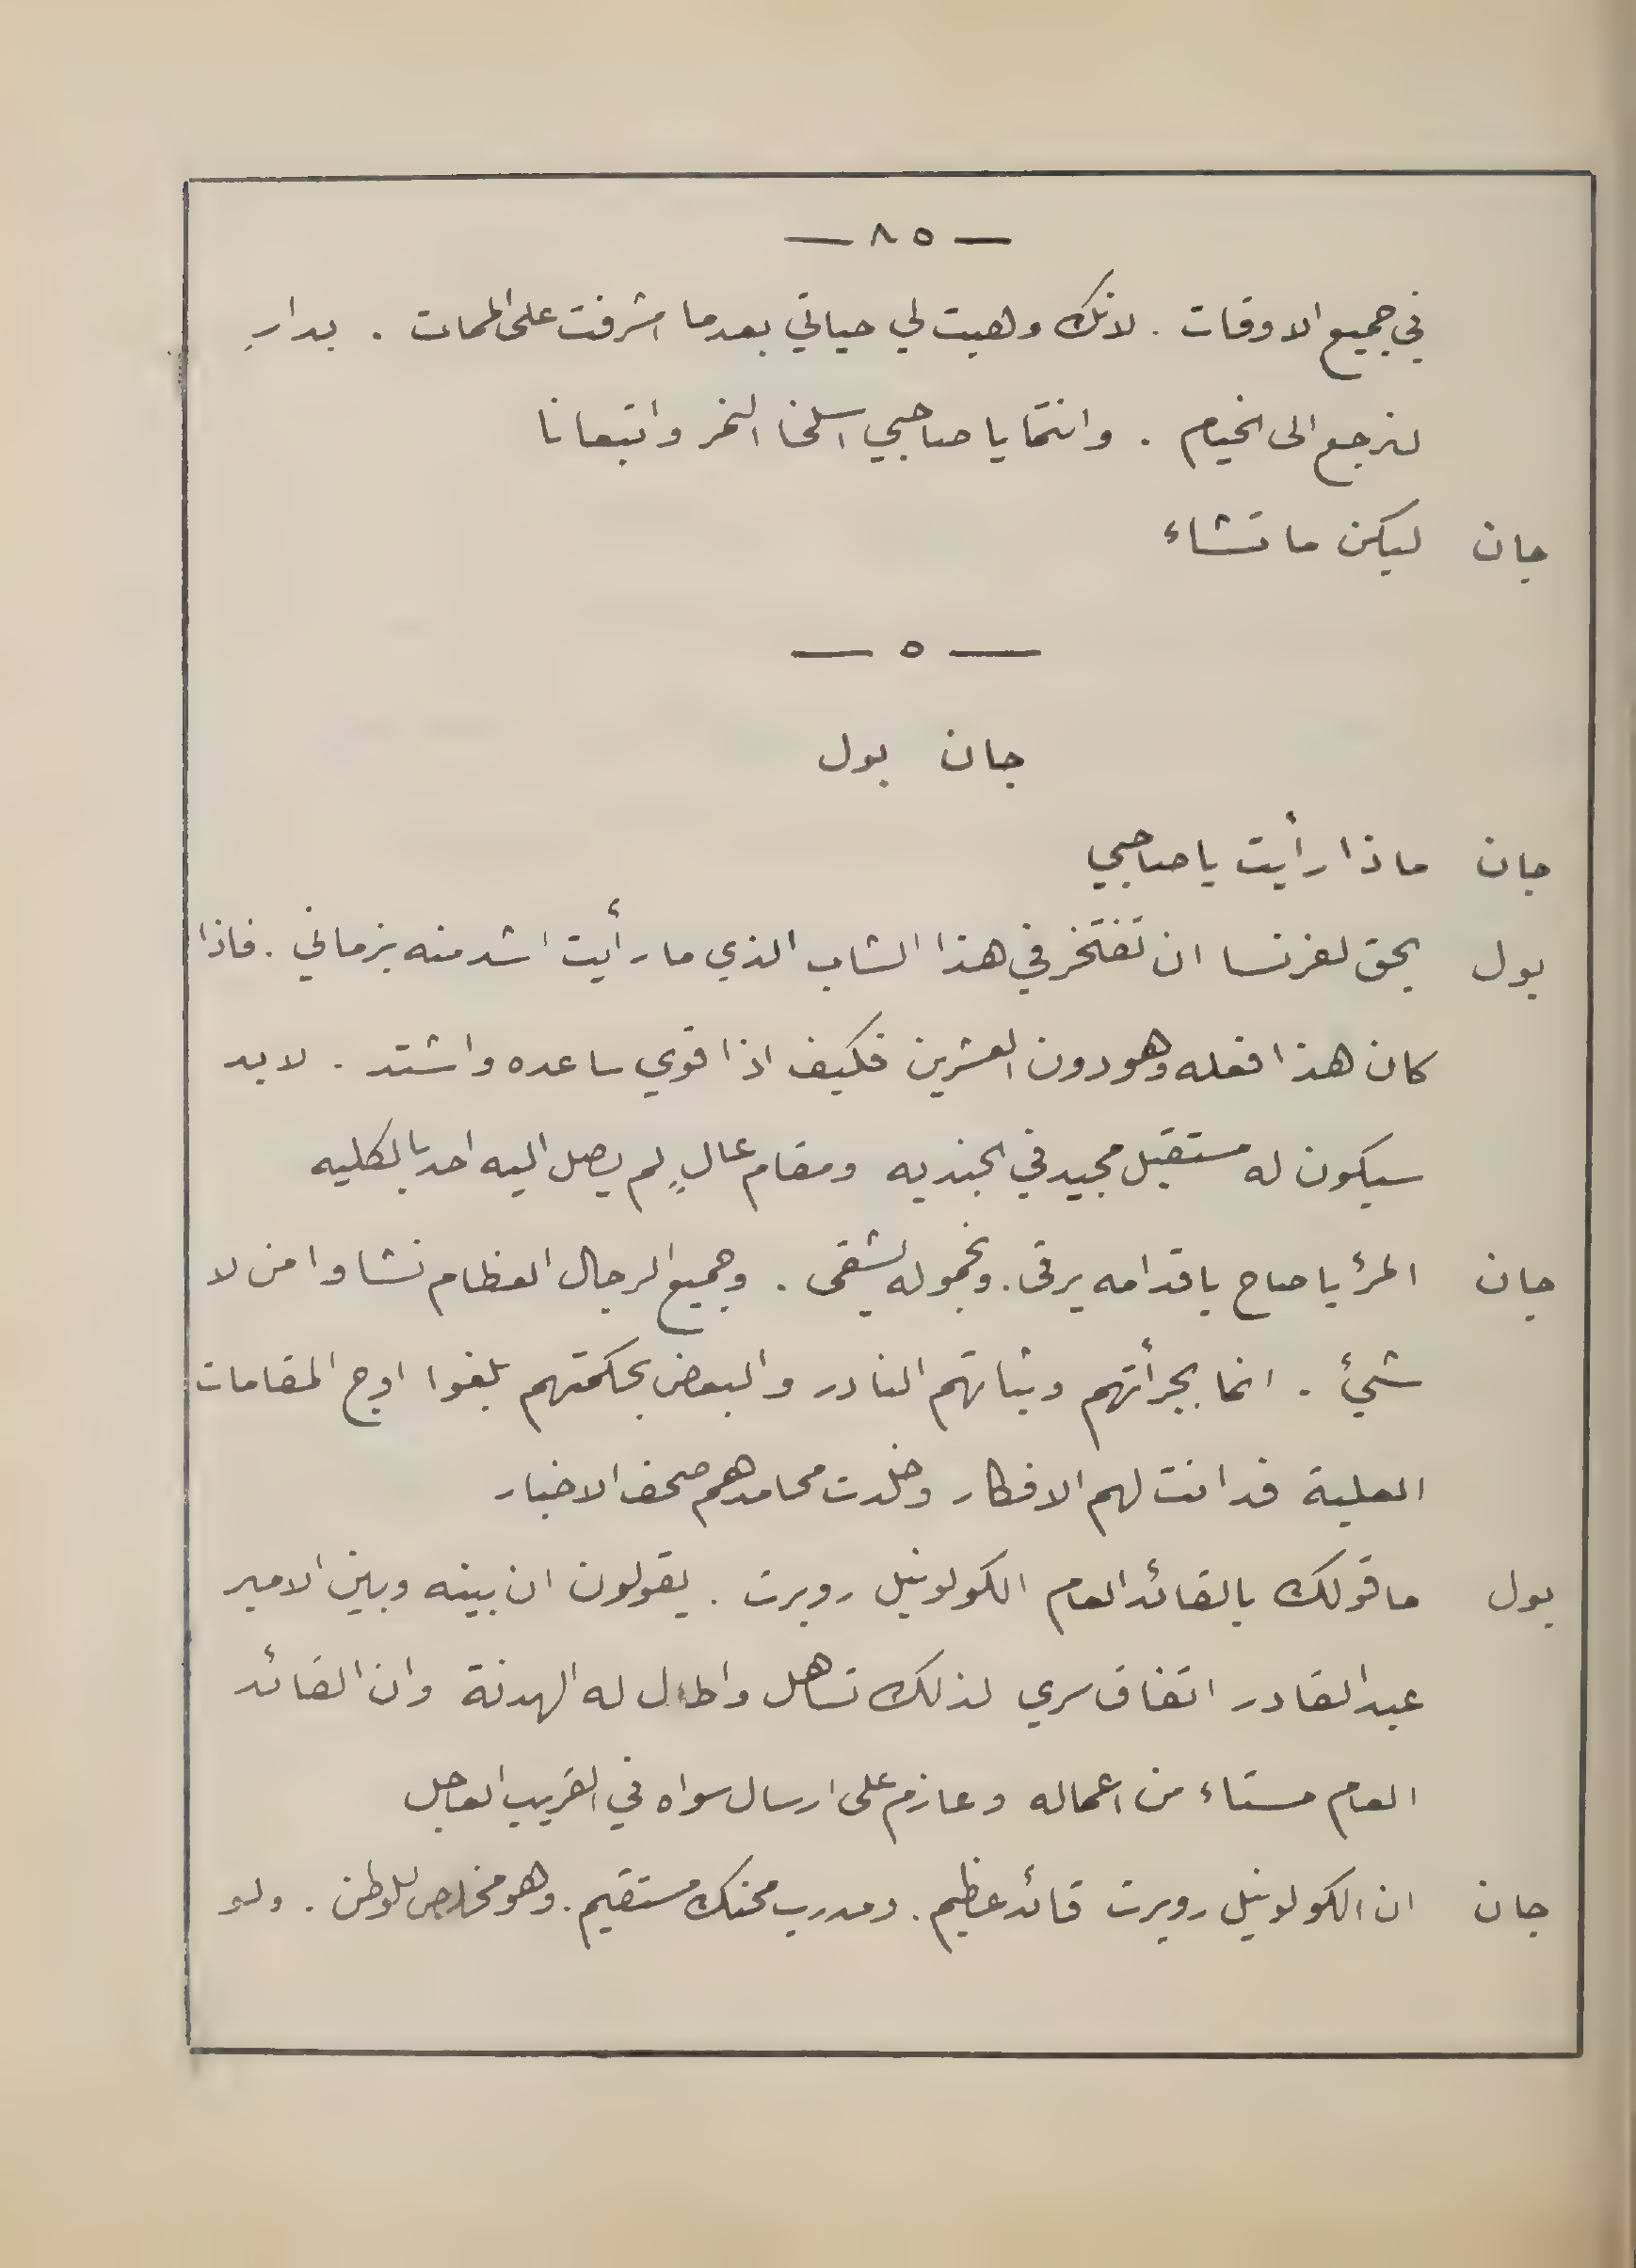 — ٨٥ —
في جميع الاوقات . لانك وهبت لي حياتي بعدما اشرفت على الممات . بدارِ
لنرجع الى الخيام . وانتما يا صاحبي اسلخا النمر واتبعانا
جان ليكن ما تشاء
— ٥ —
جان بول
جان ماذا رأيت يا صاحبي
بول يحق لفرنسا ان تفتخر في هذا الشاب الذي ما رأيت اشد منه بزماني . فاذا
كان هذا فعله وهو دون العشرين فكيف اذا قوي ساعده واشتد . لا بد
سيكون له مستقبل مجيد في الجنديه ومقام عالٍ لم يصل اليه احد بالكليه
جان المرؤ يا صاح باقدامه يرقى . وبخموله يشقى . وجميع الرجال العظام نشاوا من لا
شيئ . انما بجرأتهم وثباتهم النادر والبعض بحكمتهم بلغوا اوج المقامات
العلية فدانت لهم الافكار وخلدت محامدهم صحف الاخبار
بول ما قولك بالقائد العام الكولونيل روبرت . يقولون ان بينه وبين الامير
عبد القادر اتفاق سري لذلك تساهل واطال له الهدنة وان القائد
العام مستاء من اعماله وعازم على ارسال سواه في القريب العاجل
جان ان الكولونيل روبرت قائد عظيم . ومدرب محنك مستقيم . وهو مخلص للوطن . ولو